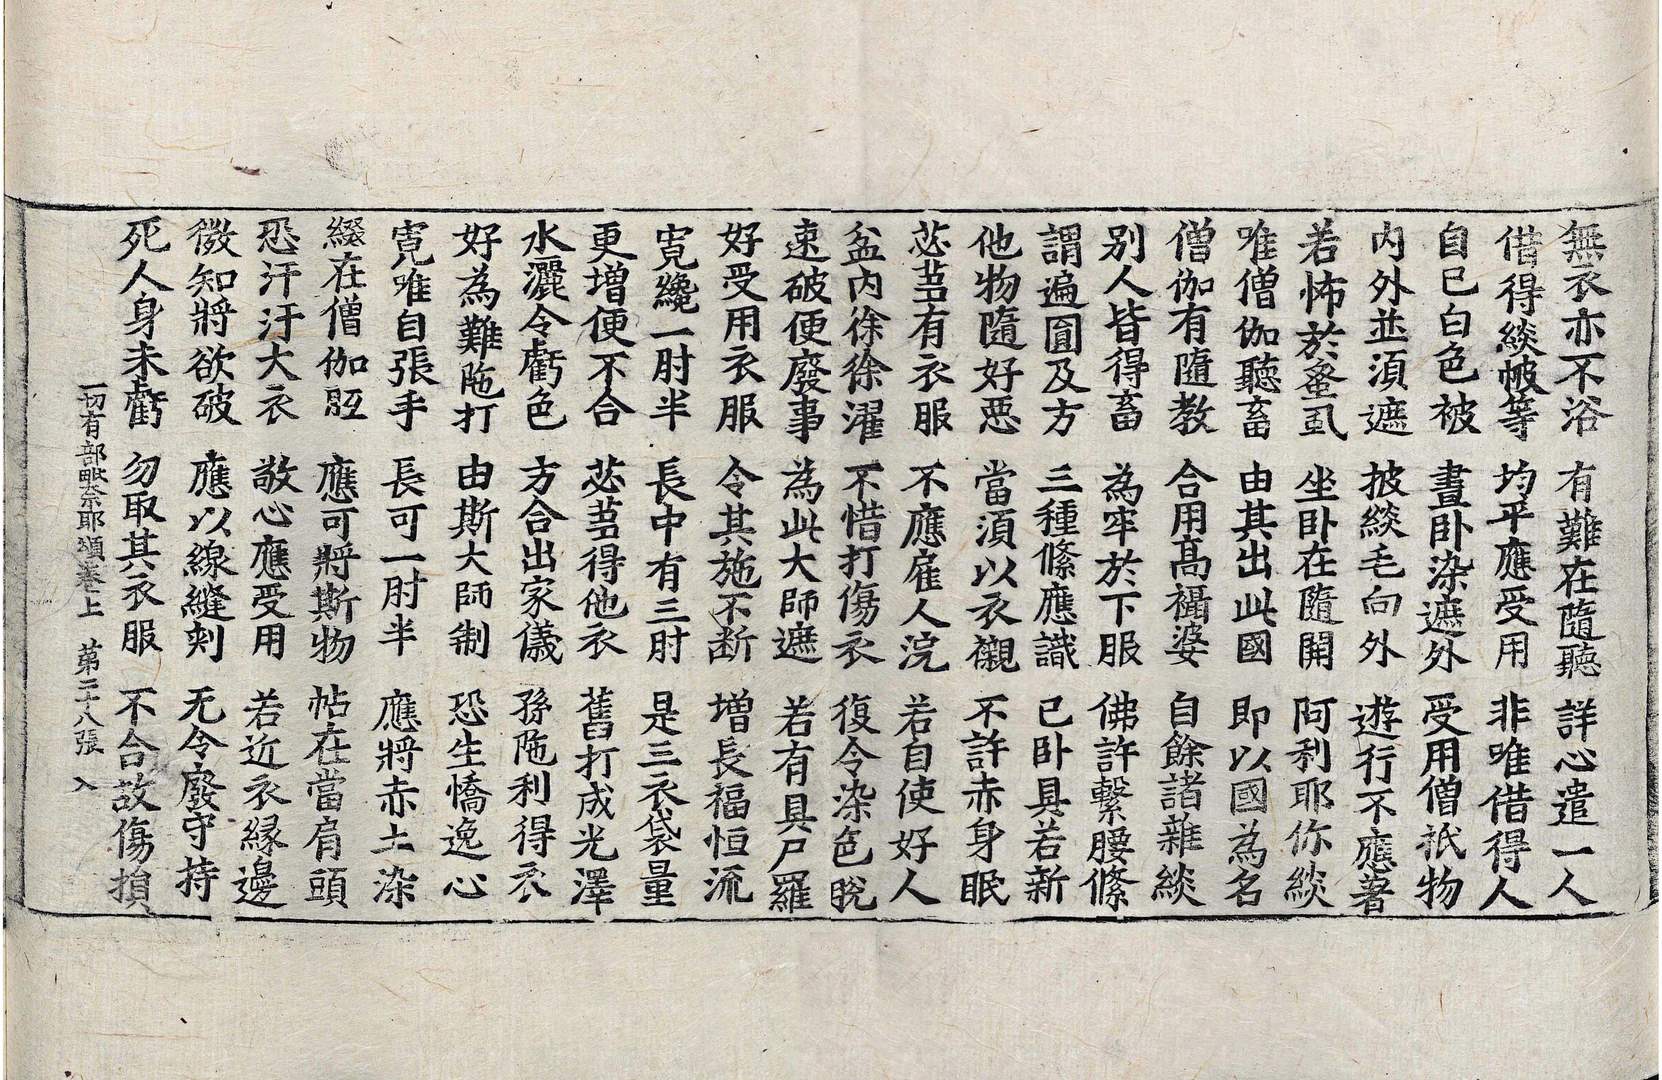 無衣亦不浴 有難在隨聽 詳心遣一人
借得緂帔等 均平應受用 非唯借得人
自已白色被 晝卧染遮外 受用僧祇物
內外並湏遮 披緂毛向外 遊行不應著
若怖於蚤虱 坐卧在隨開 阿利耶你緂
唯僧伽聽畜 由其出此國 即以國為名
僧伽有隨教 合用高襵婆 自餘諸雜緂
別人皆得畜 為牢於下服 佛許繫腰絛
謂遍圓及方 三種絛應識 已卧具若新
他物隨好惡 當湏以衣襯 不許赤身眠
苾芻有衣服 不應雇人浣 若自使好人
盆內徐徐濯 不惜打傷衣 復令染色脫
速破便廢事 為此大師遮 若有具尸羅
好受用衣服 令其施不断 增長福恒流
寬纔一肘半 長中有三肘 是三衣袋量
更增便不合 苾芻得他衣 舊打成光澤
水灑令虧色 方合出家儀 孫陁利得衣
好為難陁打 由斯大師制 恐生憍逸心
寬唯自張手 長可一肘半 應將赤土染
綴在僧伽胝 應可將斯物 帖在當肩頭
恐汗汙大衣 敬心應受用 若近衣緣邊
微知將欲破 應以線縫刾 无令廢守持
死人身未虧 勿取其衣服 不合故傷損
一切有部毗奈耶頌卷上 第二十八張 入